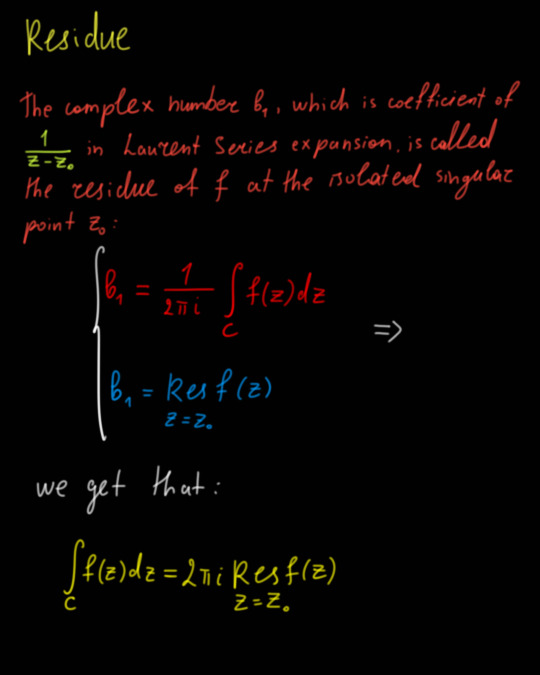 Residue
The complex number b₁, which is coefficient of
1/(z-z₀) in Laurent Series expansion, is called
the residue of f at the isolated singular
point z₀:
b₁ = 1/(2πi) ∫_C f(z)dz
=>
b₁ = Res_{z=z₀} f(z)
we get that:
∫_C f(z)dz = 2πi Res_{z=z₀} f(z)